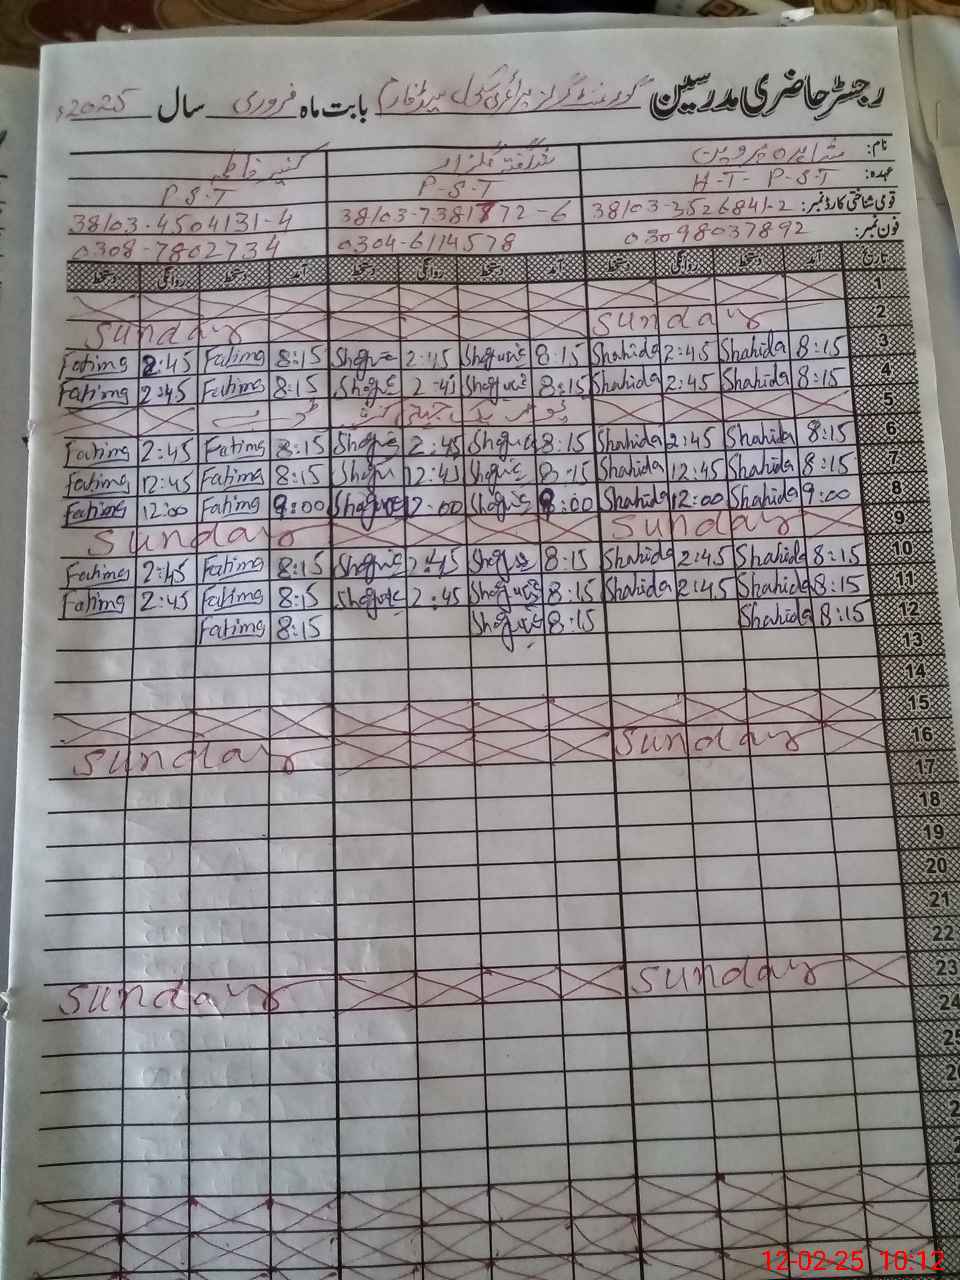 رجسٹر حاضری مدرسین گورنمنٹ گرلز پرائمری سکول سیڈ فارم بابت ماہ فروری سال 2025ء
نام: شاہدہ پروین شگفتہ گلزار کنیز فاطمہ
عہدہ: H-T- P-S-T P-S-T P-S-T
قومی شناختی کارڈ نمبر: 38103-3526841-2 38103-7381872-6 38103-4504131-4
فون نمبر: 03098037892 0304-6114578 0308-7802734
تاریخ آمد دستخط روانگی دستخط آمد دستخط روانگی دستخط آمد دستخط روانگی دستخط
1
2 Sunday Sunday
3 8:15 Shahida 2:45 Shahida 8:15 2:45 8:15 Fatima 2:45 Fatima
4 8:15 Shahida 2:45 Shahida 8:15 2:45 8:15 Fatima 2:45 Fatima
5
6 8:15 Shahida 2:45 Shahida 8:15 2:45 8:15 Fatima 2:45 Fatima
7 8:15 Shahida 12:45 Shahida 8:15 12:45 8:15 Fatima 12:45 Fatima
8 9:00 Shahida 12:00 Shahida 9:00 12:00 9:00 Fatima 12:00 Fatima
9 Sunday Sunday
10 8:15 Shahida 2:45 Shahida 8:15 2:45 8:15 Fatima 2:45 Fatima
11 8:15 Shahida 2:45 Shahida 8:15 2:45 8:15 Fatima 2:45 Fatima
12 8:15 Shahida 8:15 8:15 Fatima
13
14
15
16 Sunday Sunday
17
18
19
20
21
22
23 Sunday Sunday
24
12-02-25 10:12